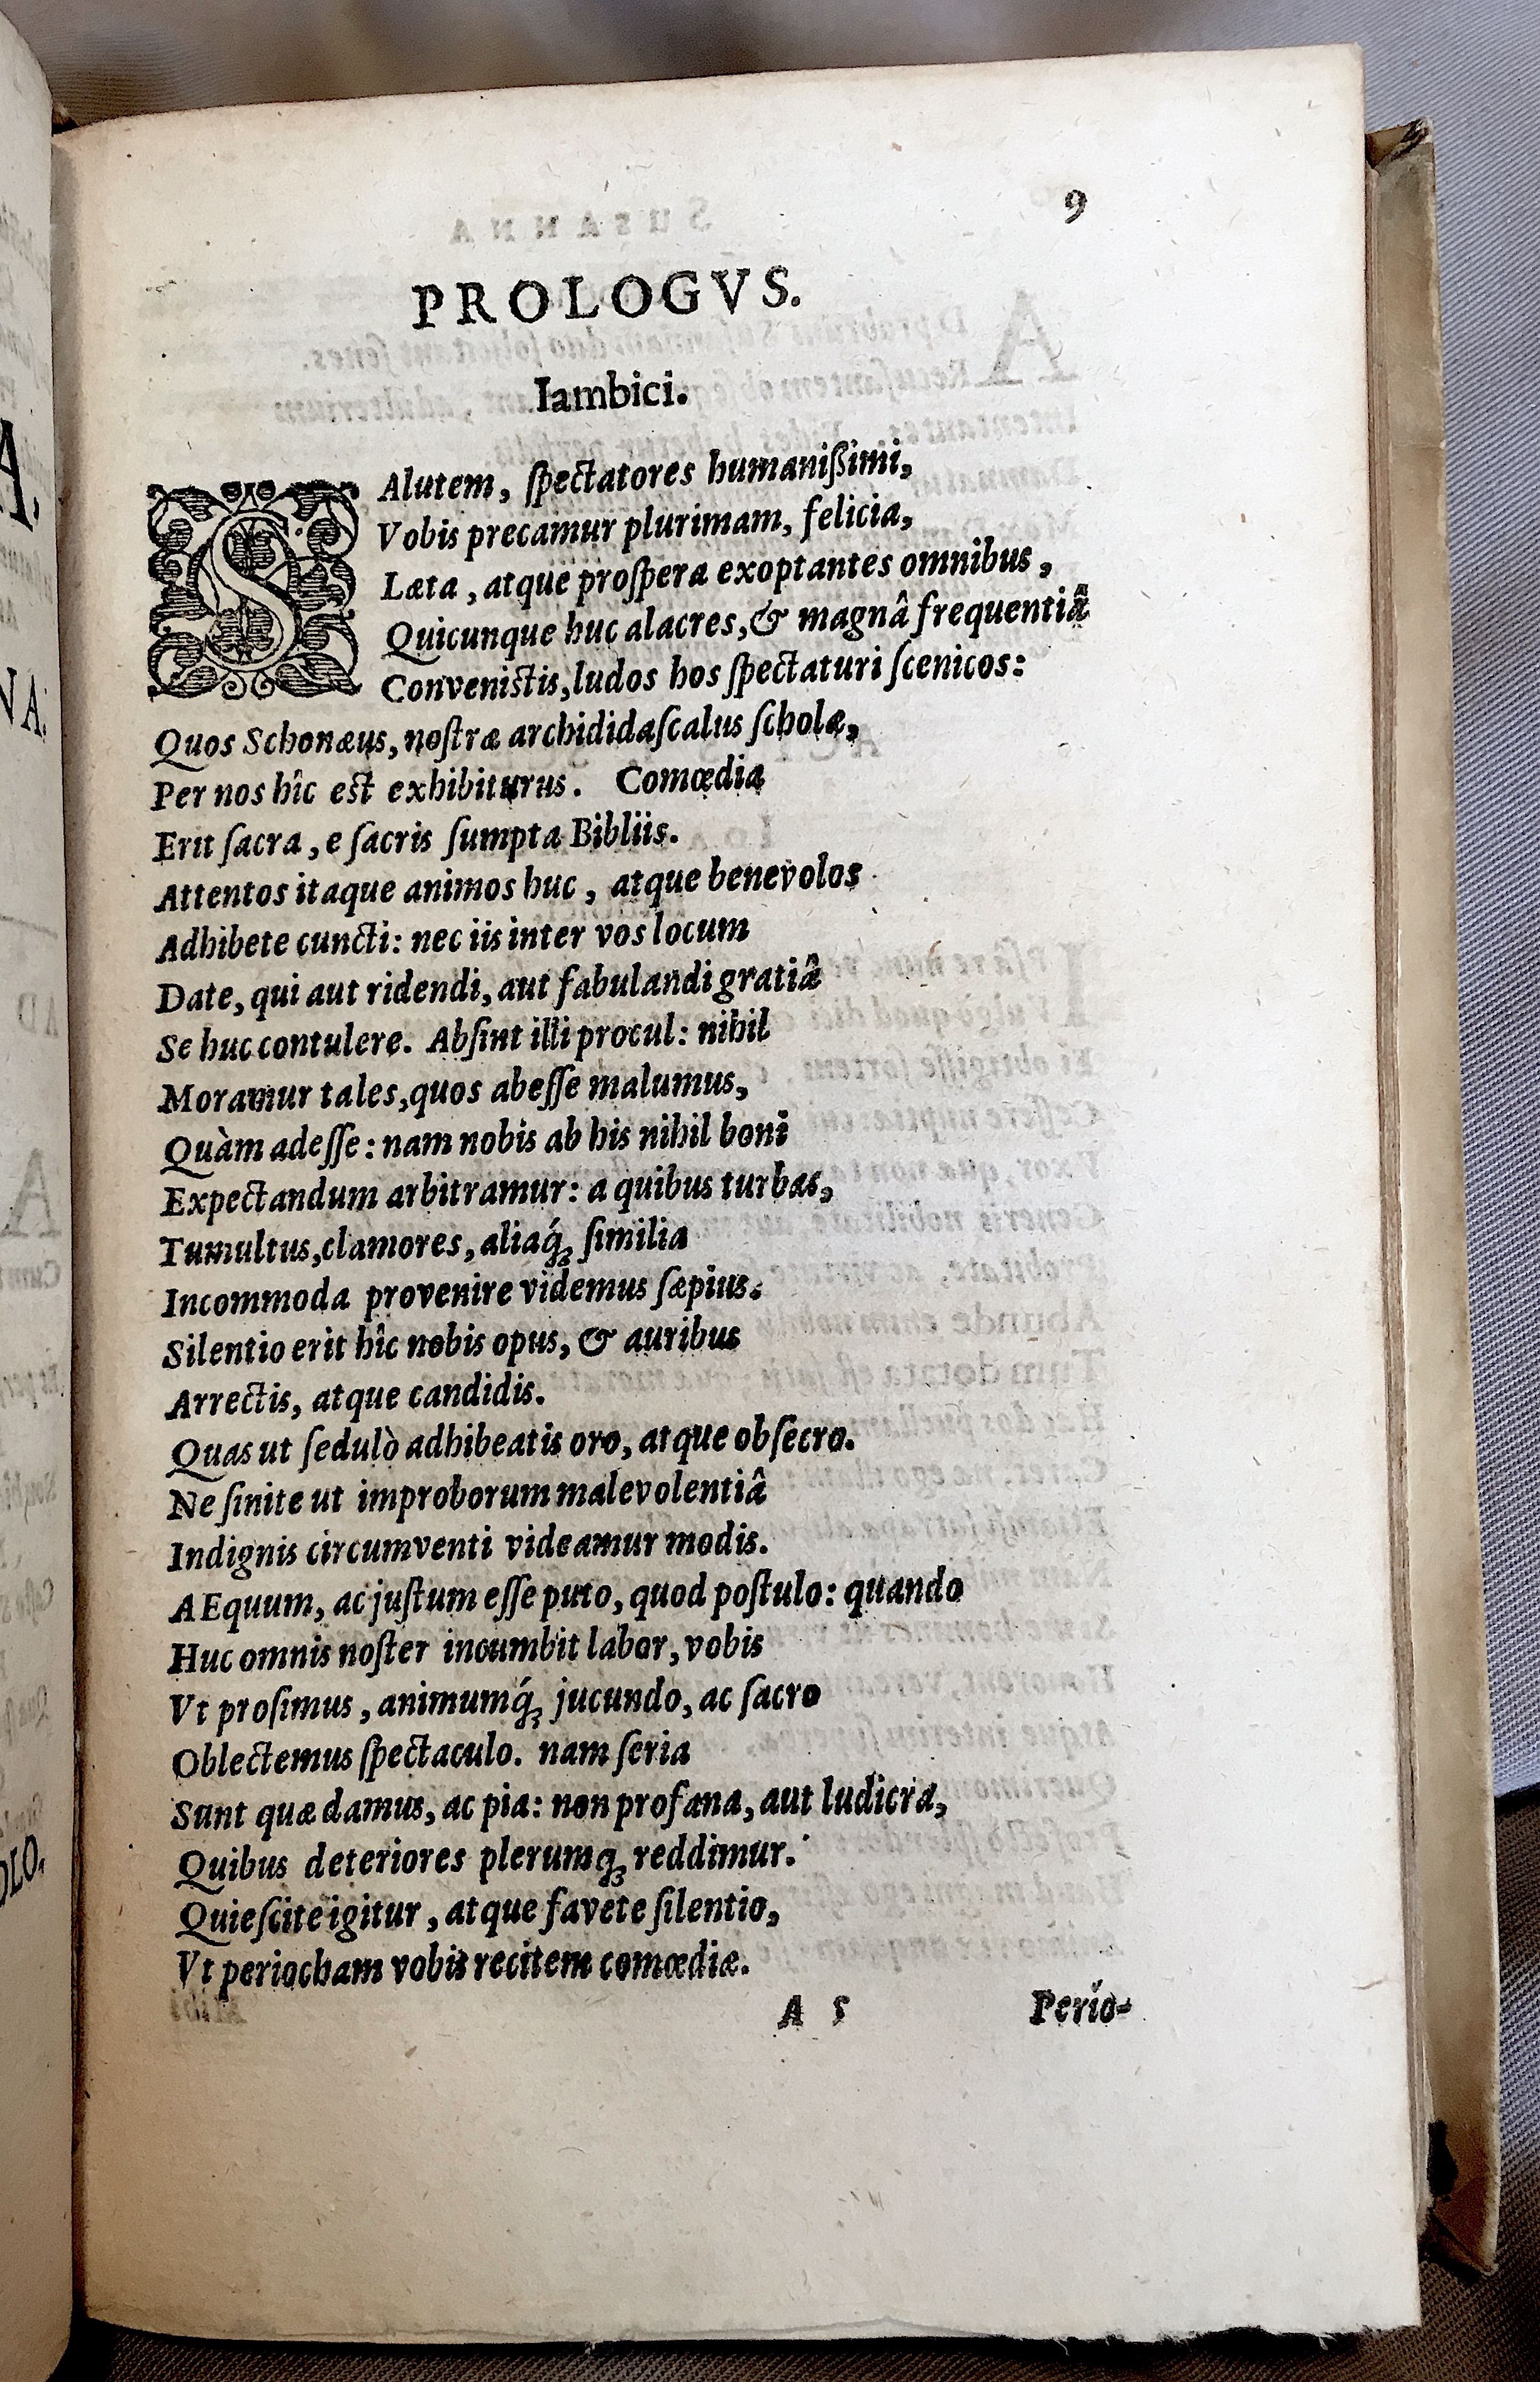 9
PROLOGVS.
Iambici.
SAlutem, ſpectatores humanißimi,
Vobis precamur plurimam, felicia,
Læta, atque proſpera exoptantes omnibus,
Quicunque huc alacres, & magnâ frequentiâ
Convenistis, ludos hos ſpectaturi ſcenicos:
Quos Schonæus, noſtræ archididaſcalus ſcholæ,
Per nos hîc est exhibiturus. Comœdia
Erit ſacra, e ſacris ſumpta Bibliis.
Attentos itaque animos huc, atque benevolos
Adhibete cuncti: nec iis inter vos locum
Date, qui aut ridendi, aut fabulandi gratiâ
Se huc contulere. Abſint illi procul: nihil
Moramur tales, quos abeſſe malumus,
Quàm adeſſe: nam nobis ab his nihil boni
Expectandum arbitramur: a quibus turbas,
Tumultus, clamores, aliaq́ꝫ ſimilia
Incommoda provenire videmus ſæpius.
Silentio erit hîc nobis opus, & auribus
Arrectis, atque candidis.
Quas ut ſedulò adhibeatis oro, atque obſecro.
Ne ſinite ut improborum malevolentiâ
Indignis circumventi videamur modis.
AEquum, ac juſtum eſſe puto, quod poſtulo: quando
Huc omnis noſter incumbit labor, vobis
Vt proſimus, animumq́ꝫ jucundo, ac ſacro
Oblectemus ſpectaculo. nam ſeria
Sunt quæ damus, ac pia: non profana, aut ludicra,
Quibus deteriores plerumqꝫ reddimur.
Quieſcite igitur, atque favete ſilentio,
Vt periocham vobis recitem comœdiæ.
A 5 Perio-